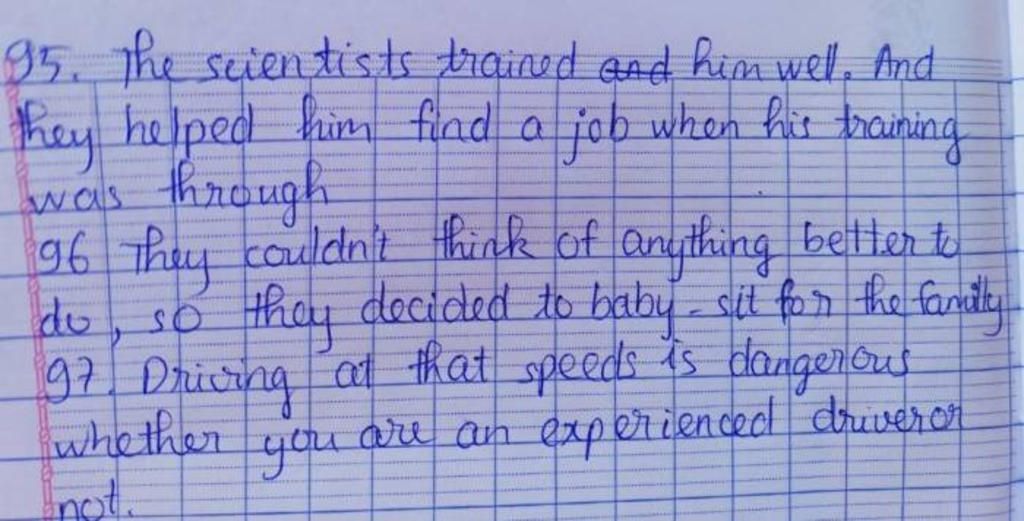 95. The scientists trained and him well. And
they helped him find a job when his training
was through
96 They couldn't think of anything better to
do, so they decided to baby-sit for the family
97. Driving at that speeds is dangerous
whether you are an experienced driver or
not.